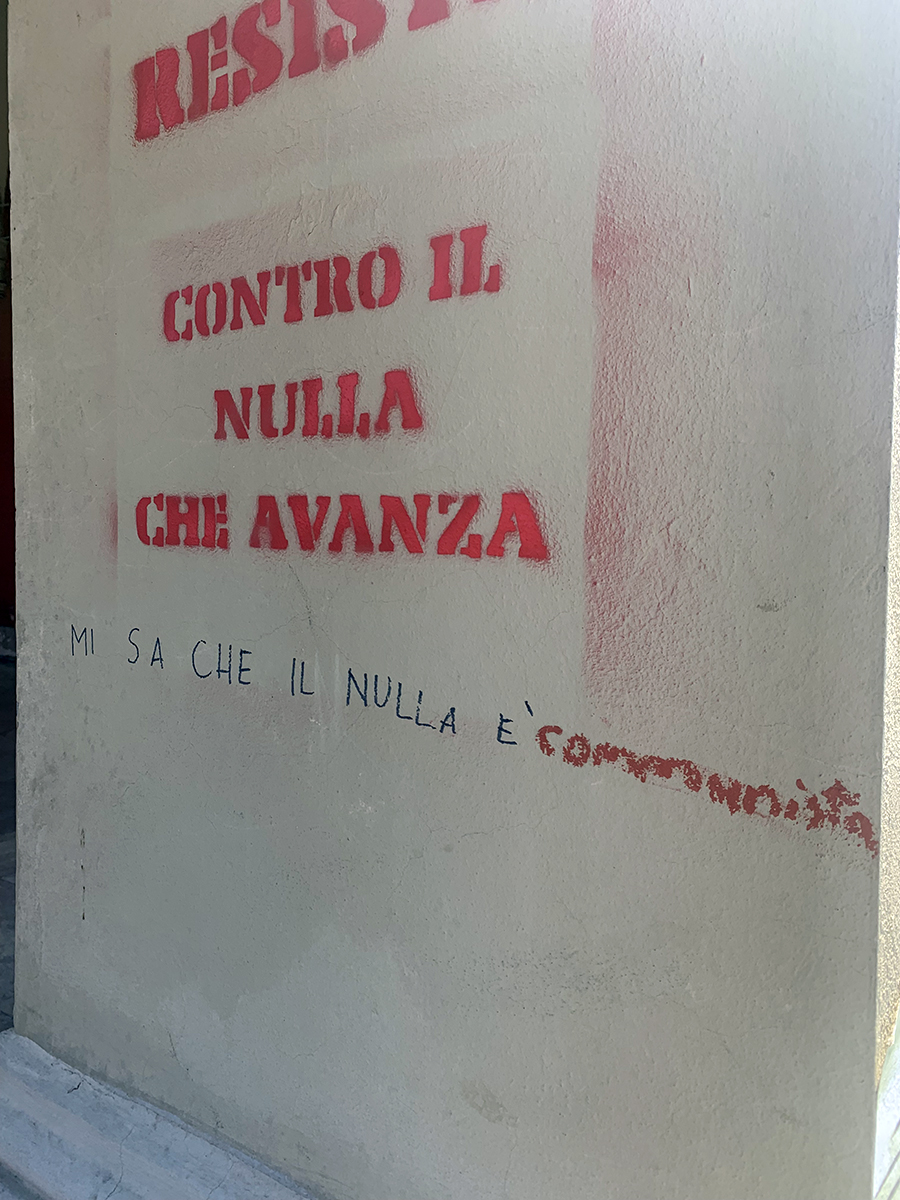 RESIST
CONTRO IL
NULLA
CHE AVANZA
MI SA CHE IL NULLA E'